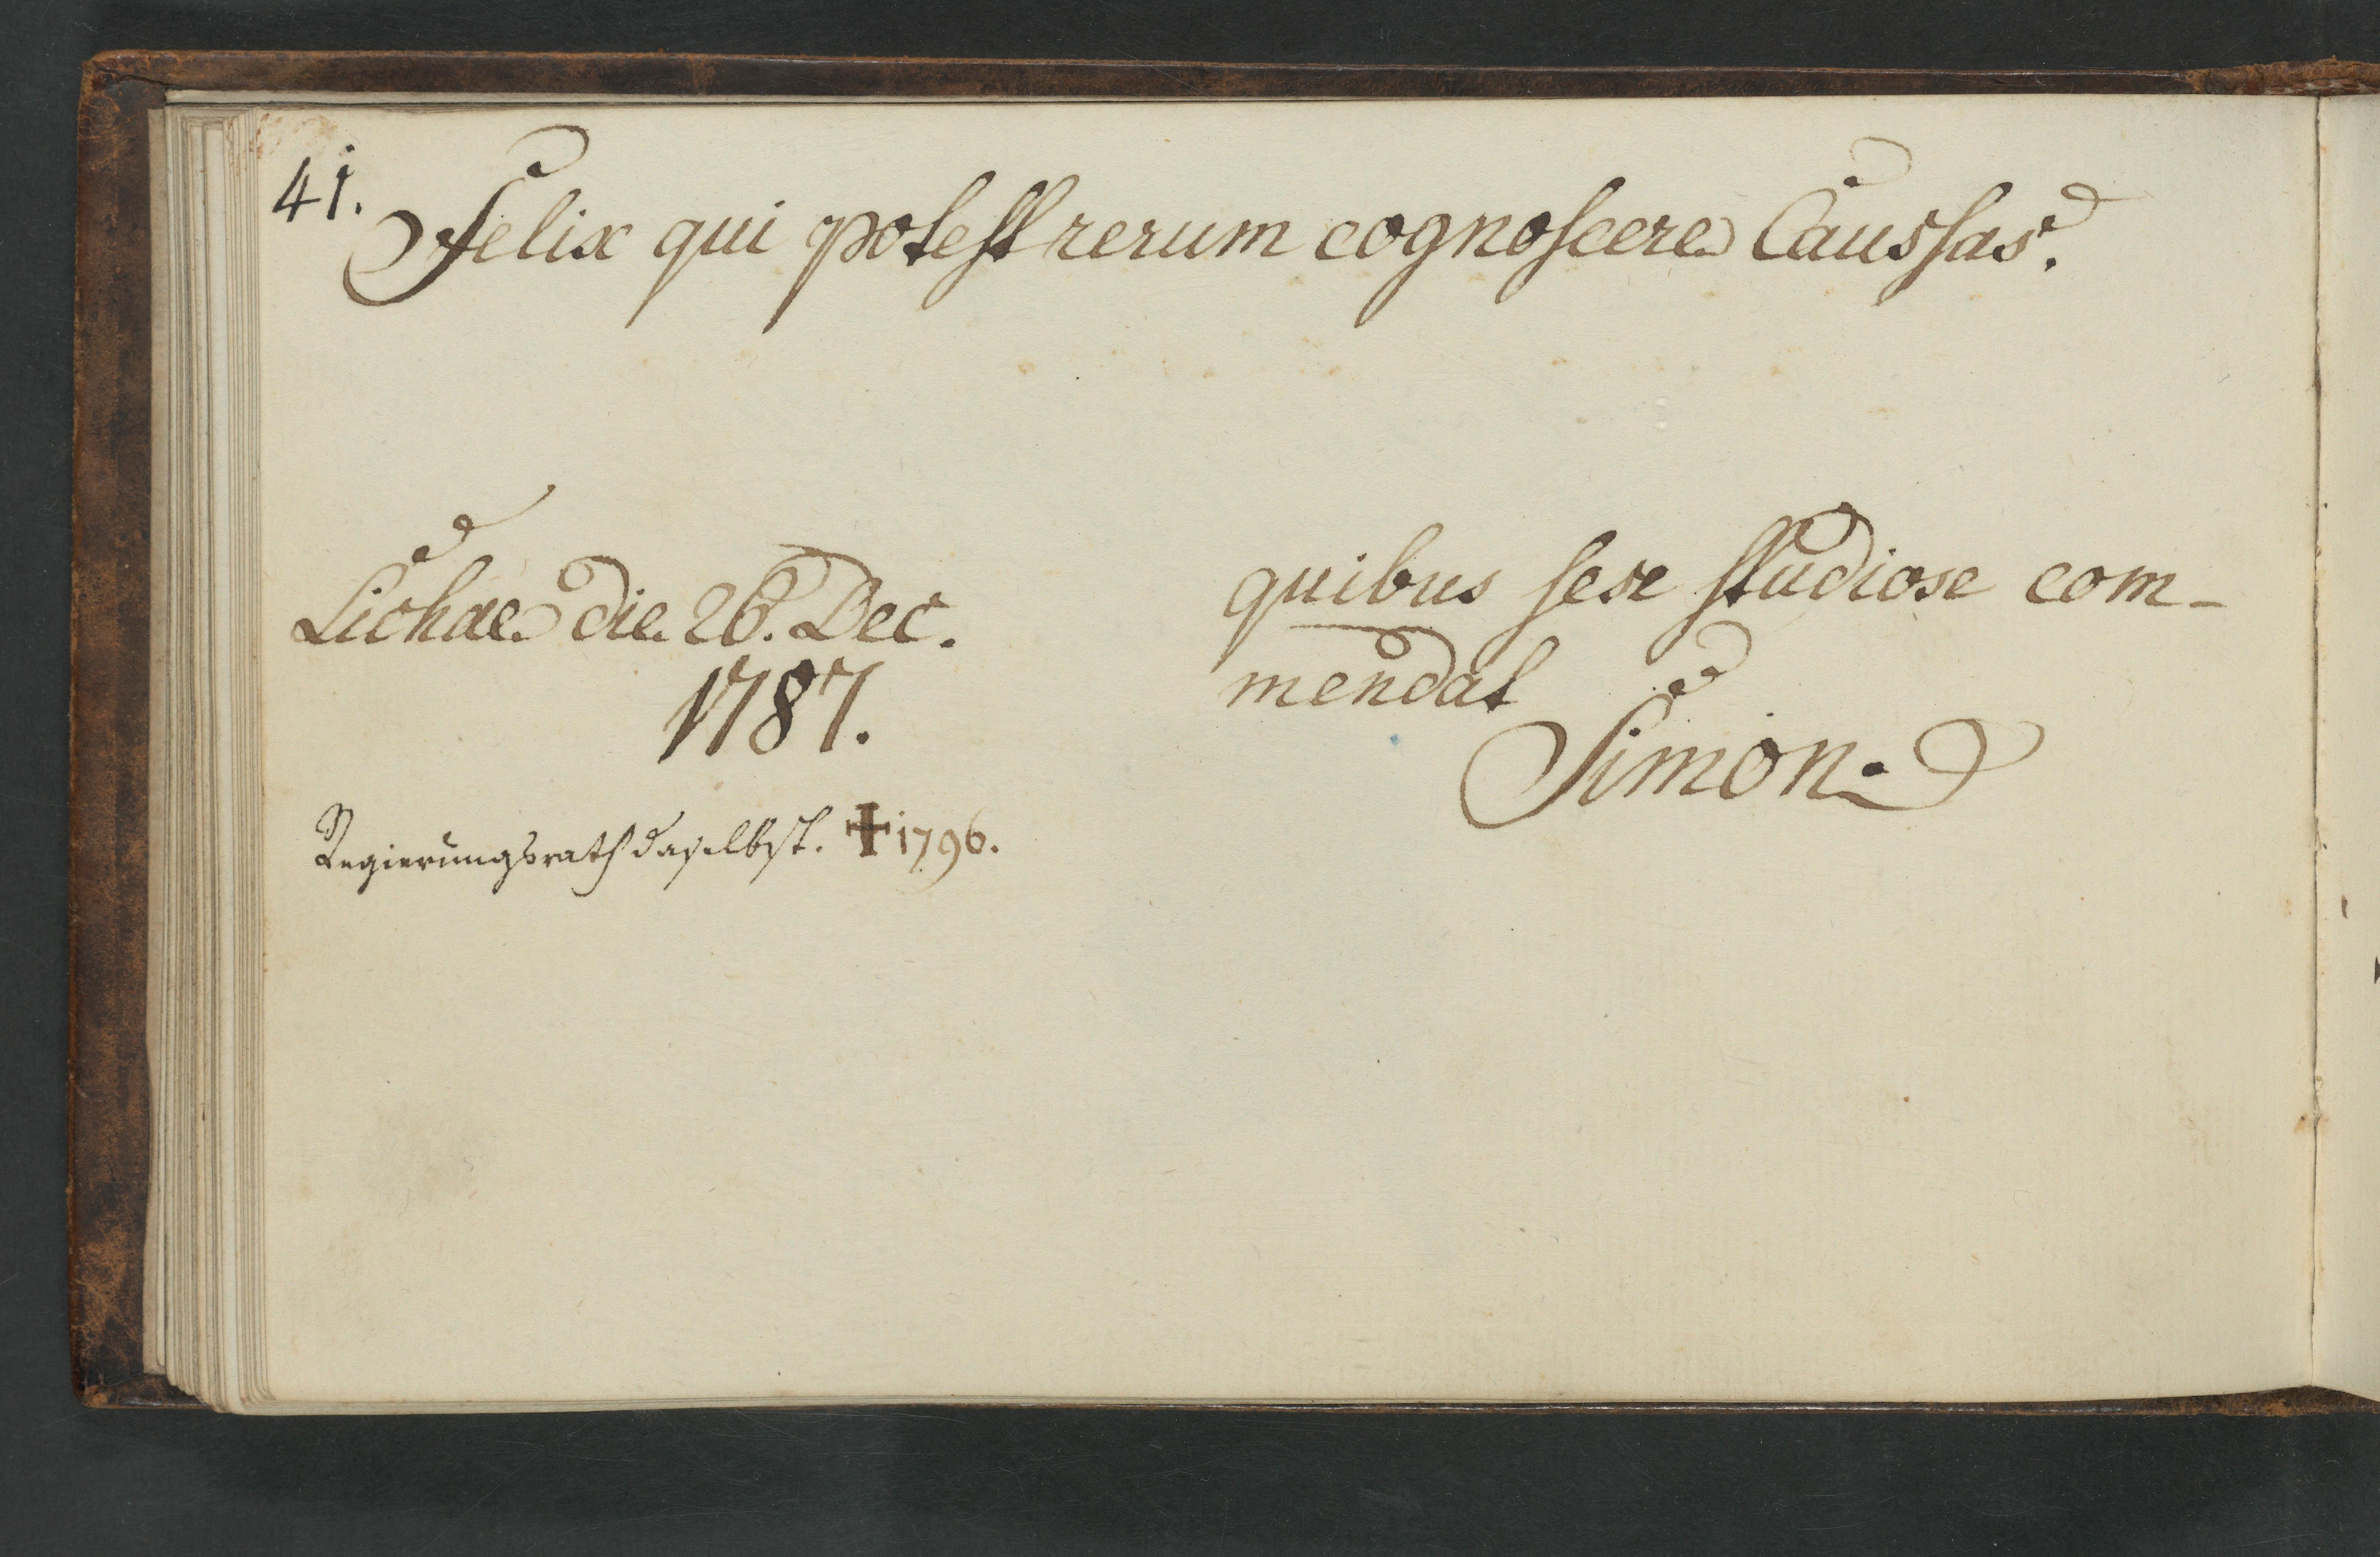 41.
Felix qui potest rerum cognoscere Caussas.
Lichae die 26. Dec.
1787.
quibus sese studiose com-
mendat
Simon.
Regierungsrath daselbst. ✝ 1796.